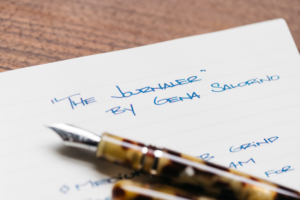 "THE JOURNALER"
BY GENA SALORINO
GRIND
AM FOR